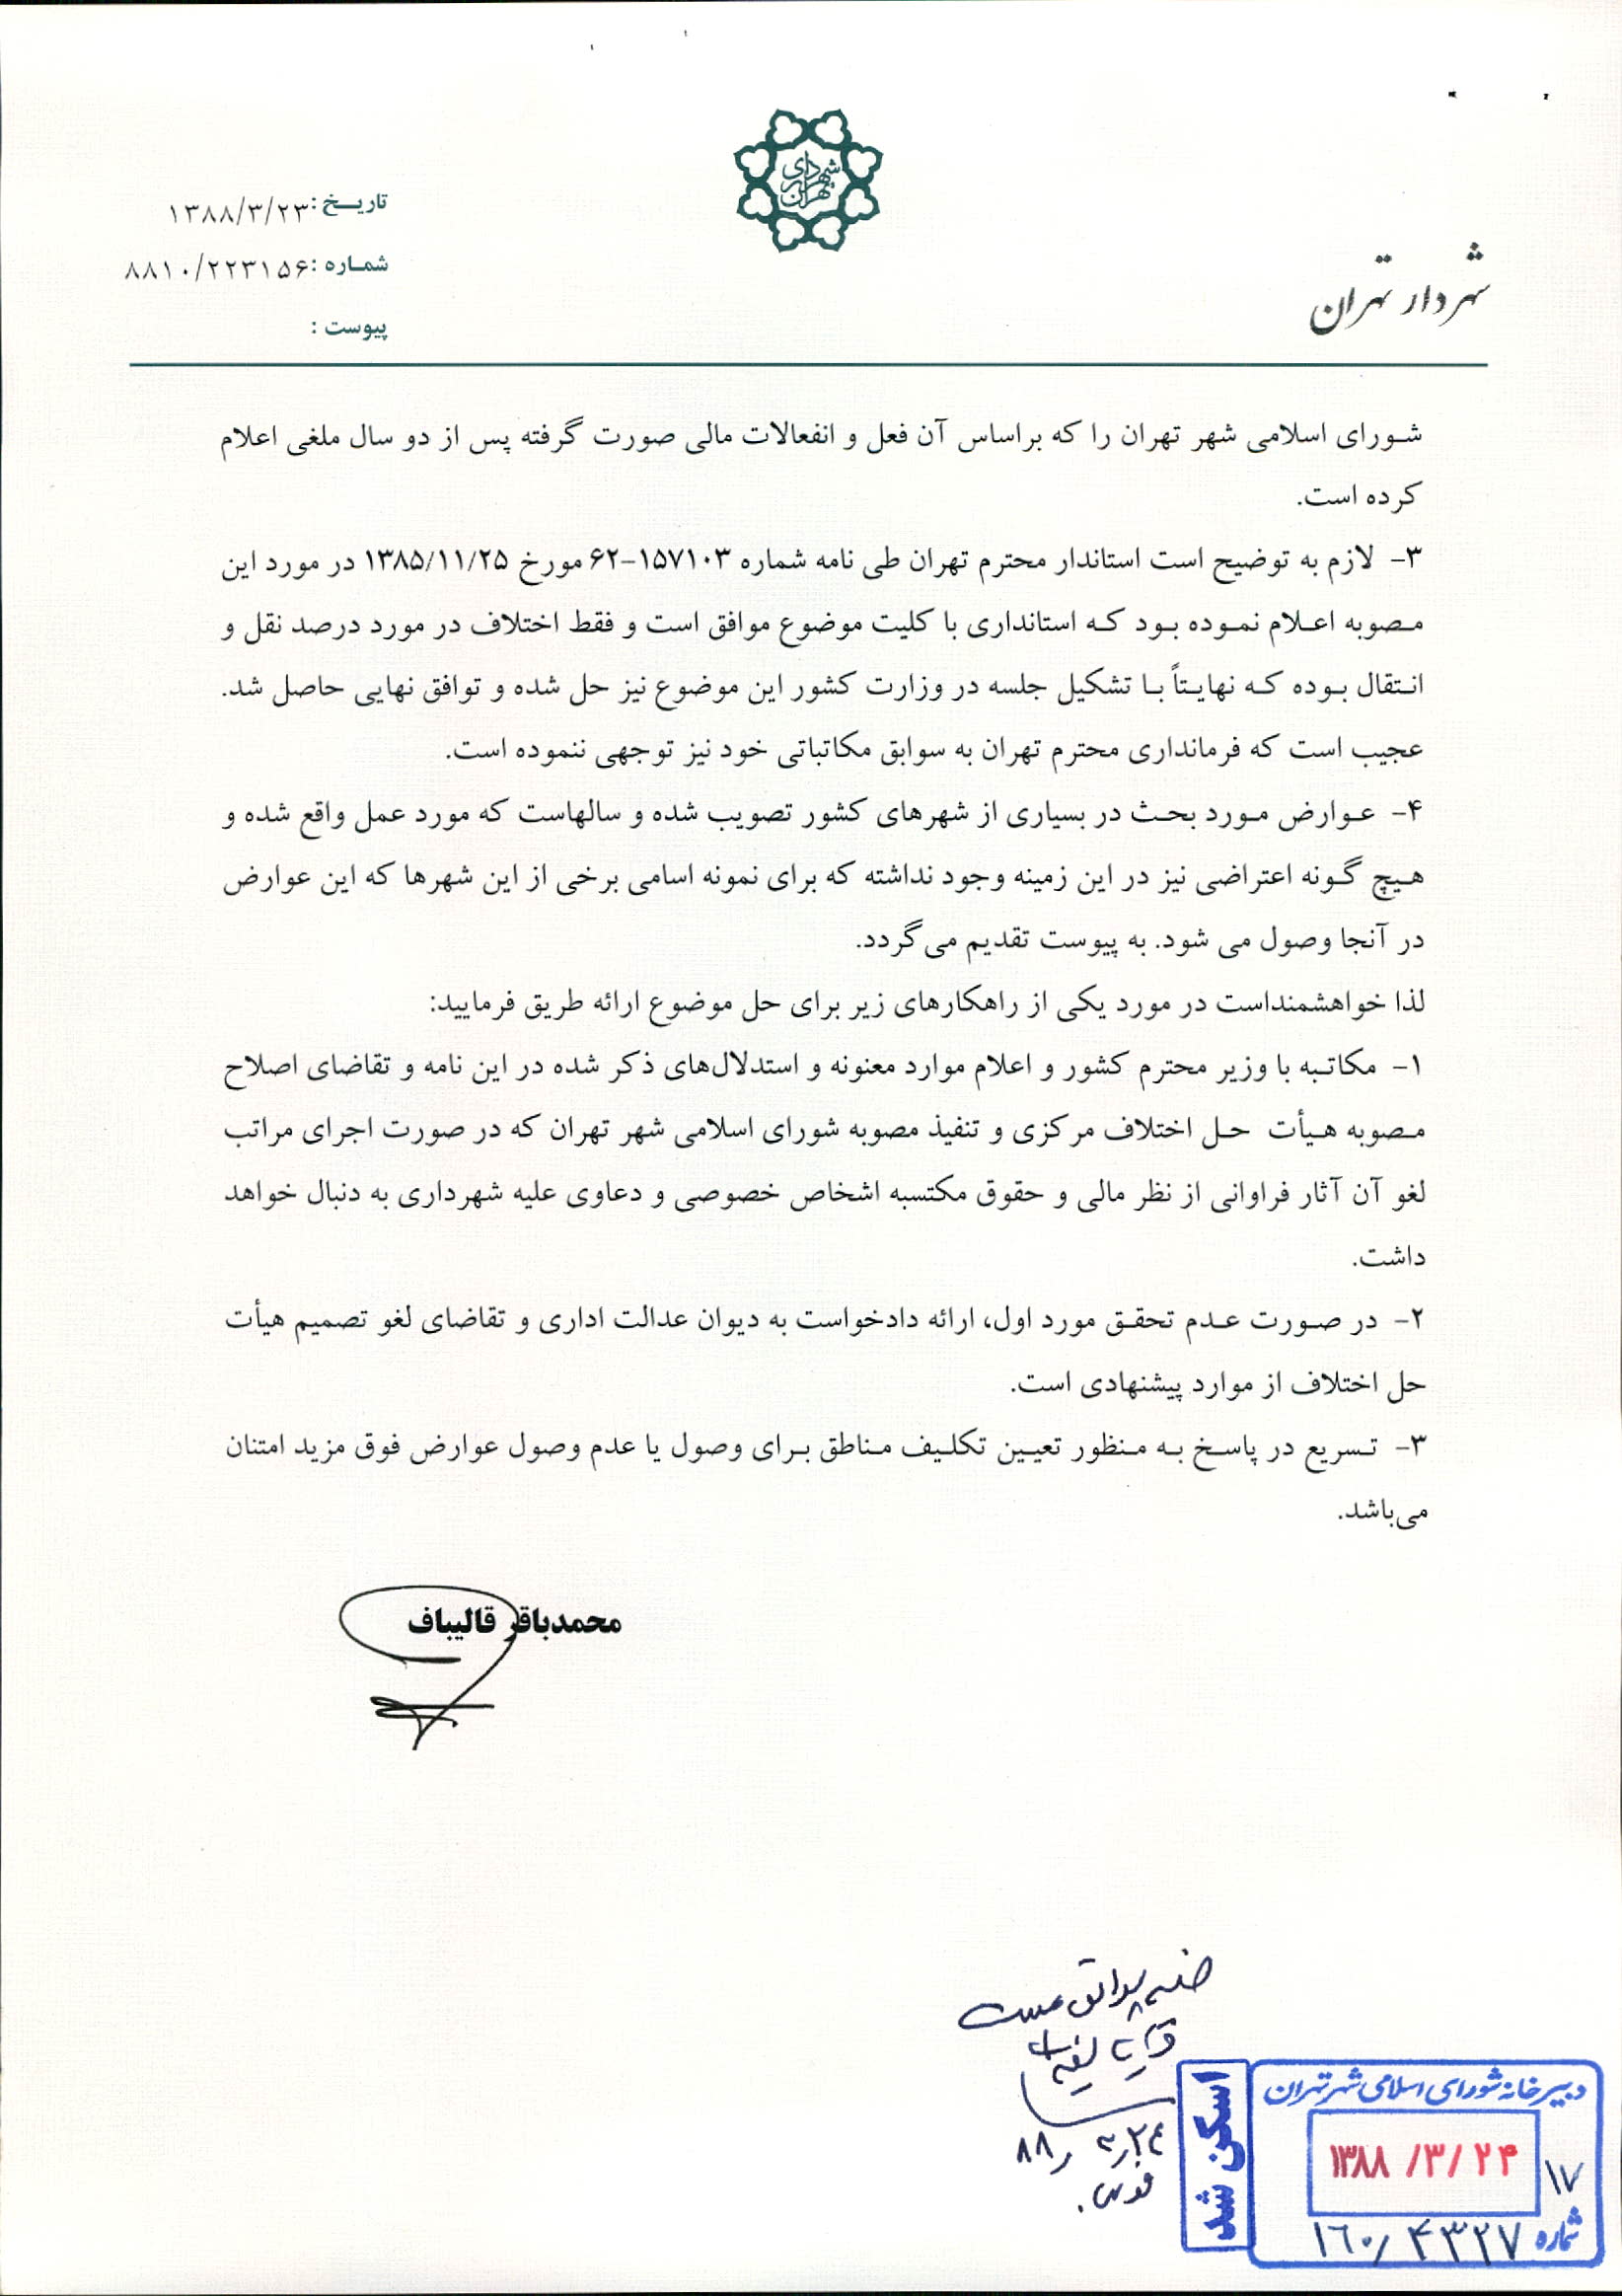 شهرداری تهران
شهردار تهران
تاریخ: ۱۳۸۸/۳/۲۳
شماره: ۸۸۱۰/۲۲۳۱۵۶
پیوست :
شورای اسلامی شهر تهران را که براساس آن فعل و انفعالات مالی صورت گرفته پس از دو سال ملغی اعلام
کرده است.
۳- لازم به توضیح است استاندار محترم تهران طی نامه شماره ۱۵۷۱۰۳-۶۲ مورخ ۱۳۸۵/۱۱/۲۵ در مورد این
مصوبه اعلام نموده بود که استانداری با کلیت موضوع موافق است و فقط اختلاف در مورد درصد نقل و
انتقال بوده که نهایتاً با تشکیل جلسه در وزارت کشور این موضوع نیز حل شده و توافق نهایی حاصل شد.
عجیب است که فرمانداری محترم تهران به سوابق مکاتباتی خود نیز توجهی ننموده است.
۴- عوارض مورد بحث در بسیاری از شهرهای کشور تصویب شده و سالهاست که مورد عمل واقع شده و
هیچ گونه اعتراضی نیز در این زمینه وجود نداشته که برای نمونه اسامی برخی از این شهرها که این عوارض
در آنجا وصول می شود. به پیوست تقدیم می‌گردد.
لذا خواهشمنداست در مورد یکی از راهکارهای زیر برای حل موضوع ارائه طریق فرمایید:
۱- مکاتبه با وزیر محترم کشور و اعلام موارد معنونه و استدلال‌های ذکر شده در این نامه و تقاضای اصلاح
مصوبه هیأت حل اختلاف مرکزی و تنفیذ مصوبه شورای اسلامی شهر تهران که در صورت اجرای مراتب
لغو آن آثار فراوانی از نظر مالی و حقوق مکتسبه اشخاص خصوصی و دعاوی علیه شهرداری به دنبال خواهد
داشت.
۲- در صورت عدم تحقق مورد اول، ارائه دادخواست به دیوان عدالت اداری و تقاضای لغو تصمیم هیأت
حل اختلاف از موارد پیشنهادی است.
۳- تسریع در پاسخ به منظور تعیین تکلیف مناطق برای وصول یا عدم وصول عوارض فوق مزید امتنان
می‌باشد.
محمدباقر قالیباف
دبیرخانه شورای اسلامی شهر تهران
۱۳۸۸/۳/۲۴
۱۷
شماره ۱۶۰/۴۳۲۷
اسکن شد